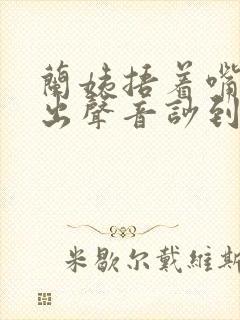 蘭姨捂着嘴
出聲音訬到
米歇尔戴維斯